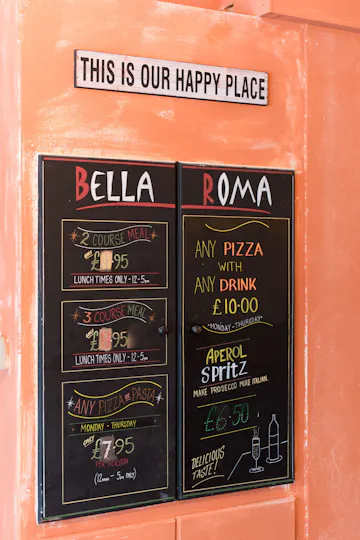 THIS IS OUR HAPPY PLACE
BELLA ROMA
2 COURSE MEAL
ONLY
£ .95
LUNCH TIMES ONLY - 12-5pm
3 COURSE MEAL
ONLY
£ .95
LUNCH TIMES ONLY - 12-5pm
ANY PIZZA OR PASTA
MONDAY - THURSDAY
ONLY
£7.95
PER PERSON
(12noon - 5pm ONLY)
ANY PIZZA
WITH
ANY DRINK
£10.00
"MONDAY - THURSDAY"
APEROL
SPRITZ
MAKE PROSECCO MORE ITALIAN.
£6.50
DELICIOUS
TASTE!